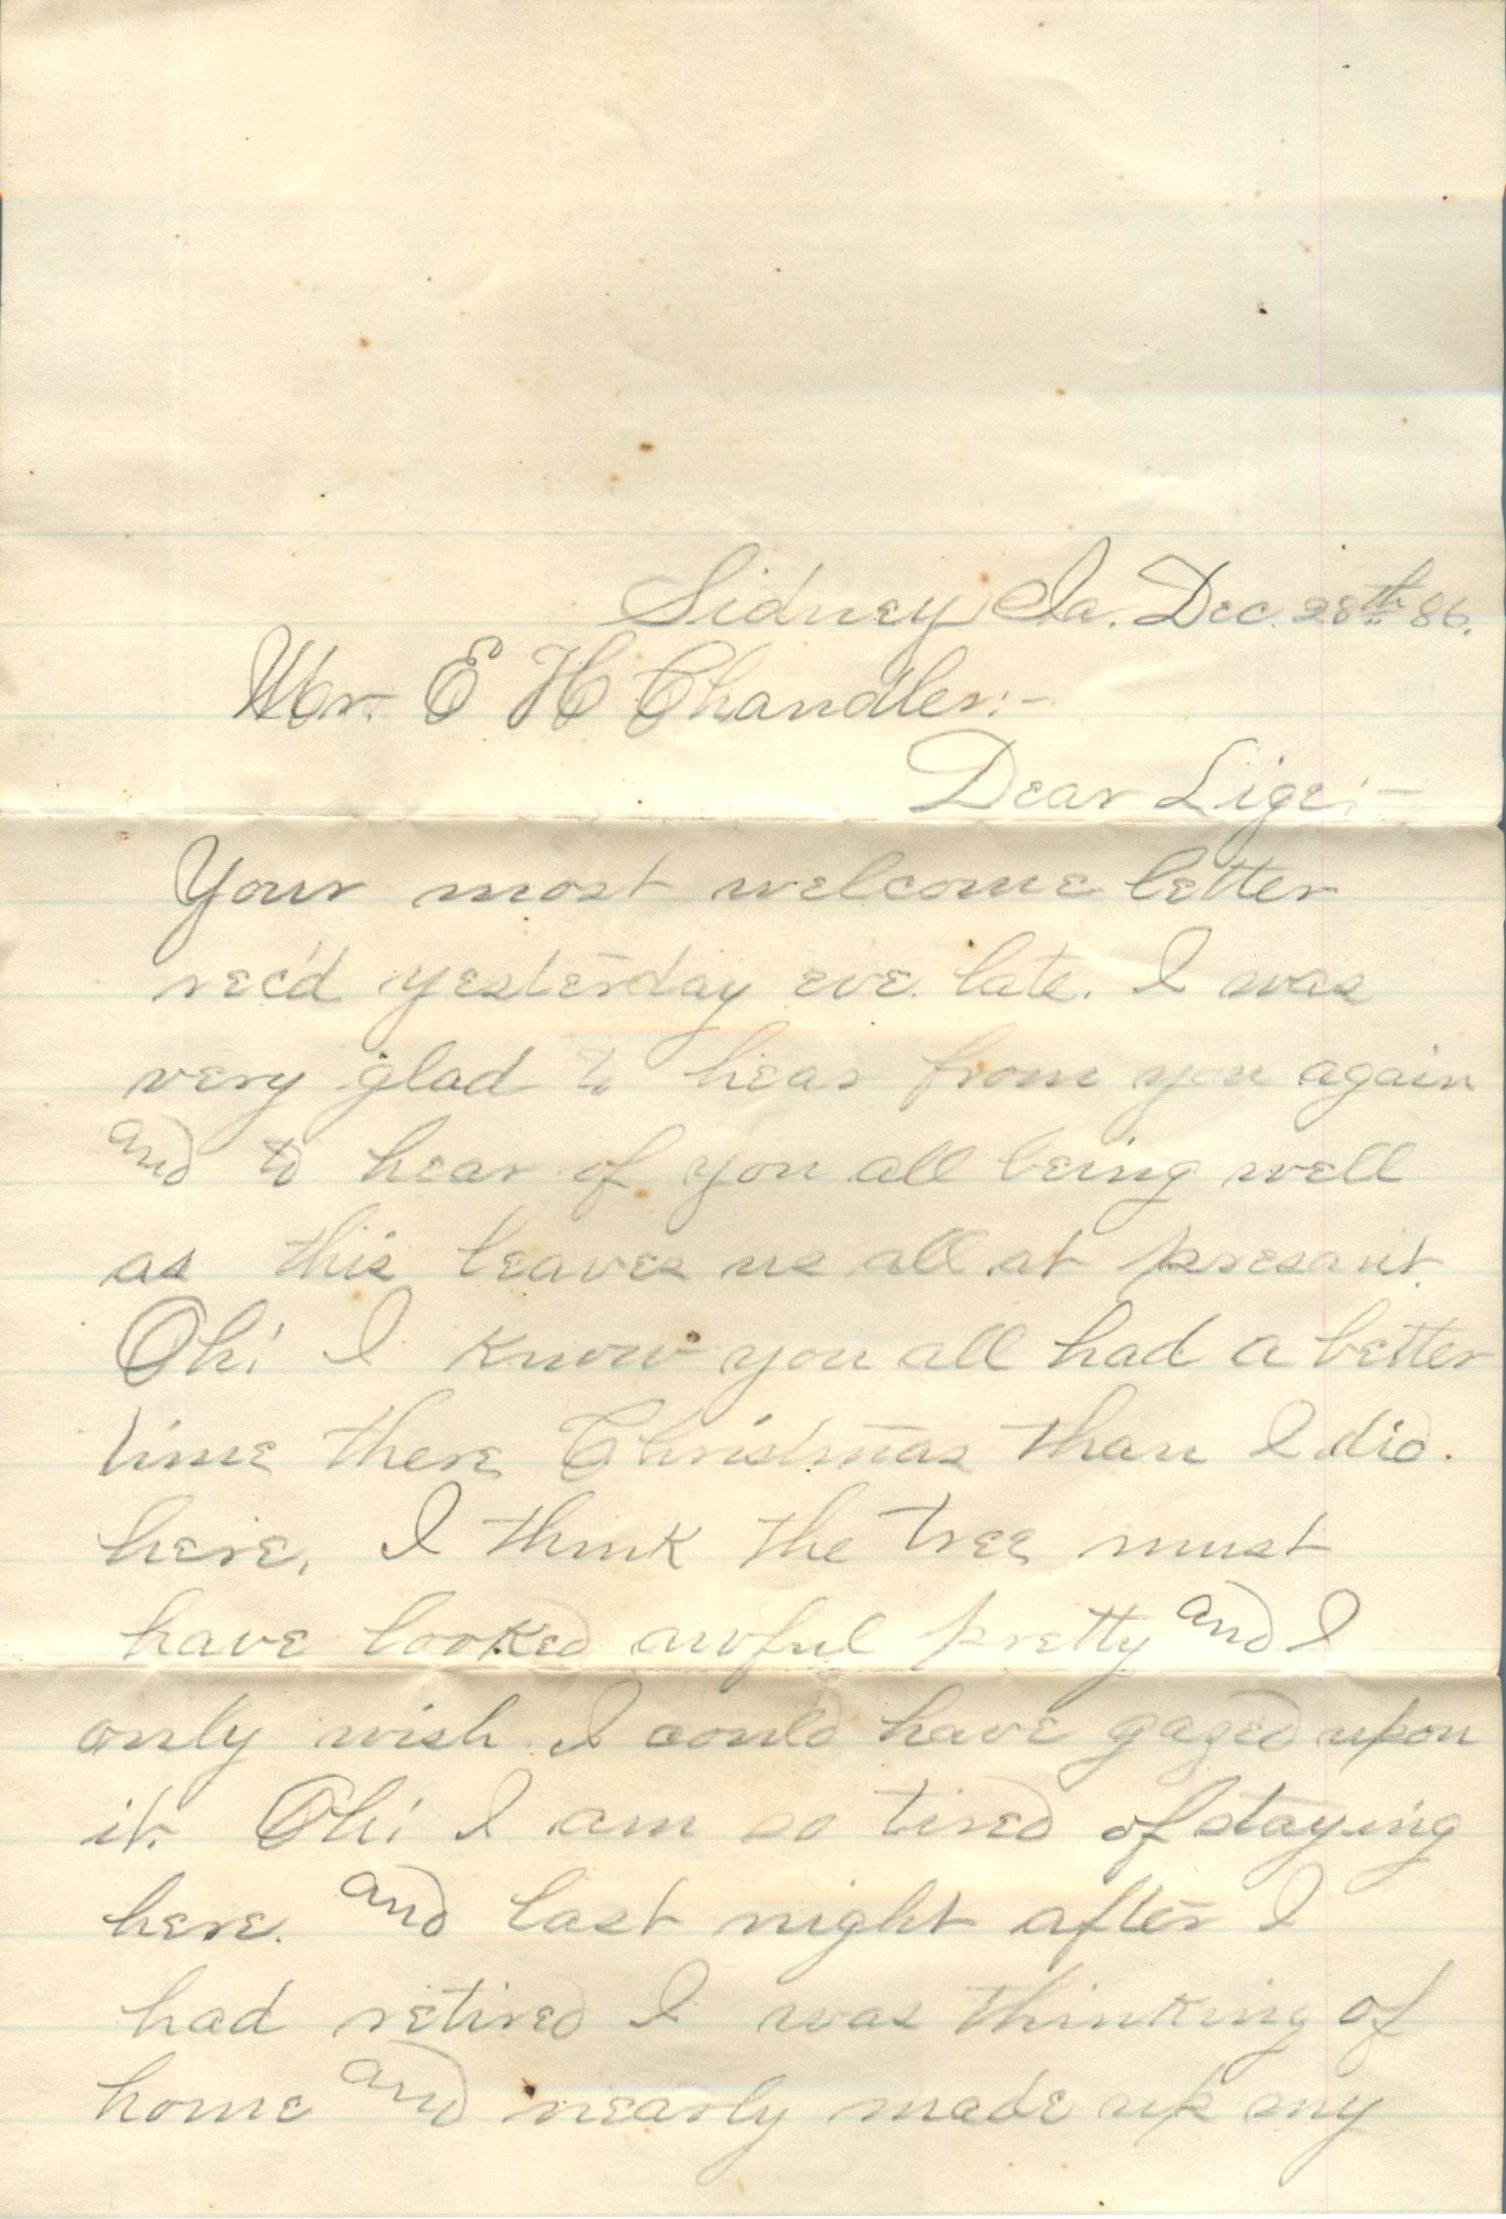 Sidney Ia. Dec. 28th 86.
Mr. E H Chandler:-
Dear Lige:-
Your most welcome letter
rec'd yesterday eve. late. I was
very glad to hear from you again
and to hear of you all being well
as this leaves us all at presant.
Oh! I know you all had a better
time there Christmas than I did.
here. I think the tree must
have looked awful pretty and I
only wish I could have gazed upon
it. Oh! I am so tired of staying
here. and last night after I
had retired I was thinking of
home and nearly made up my